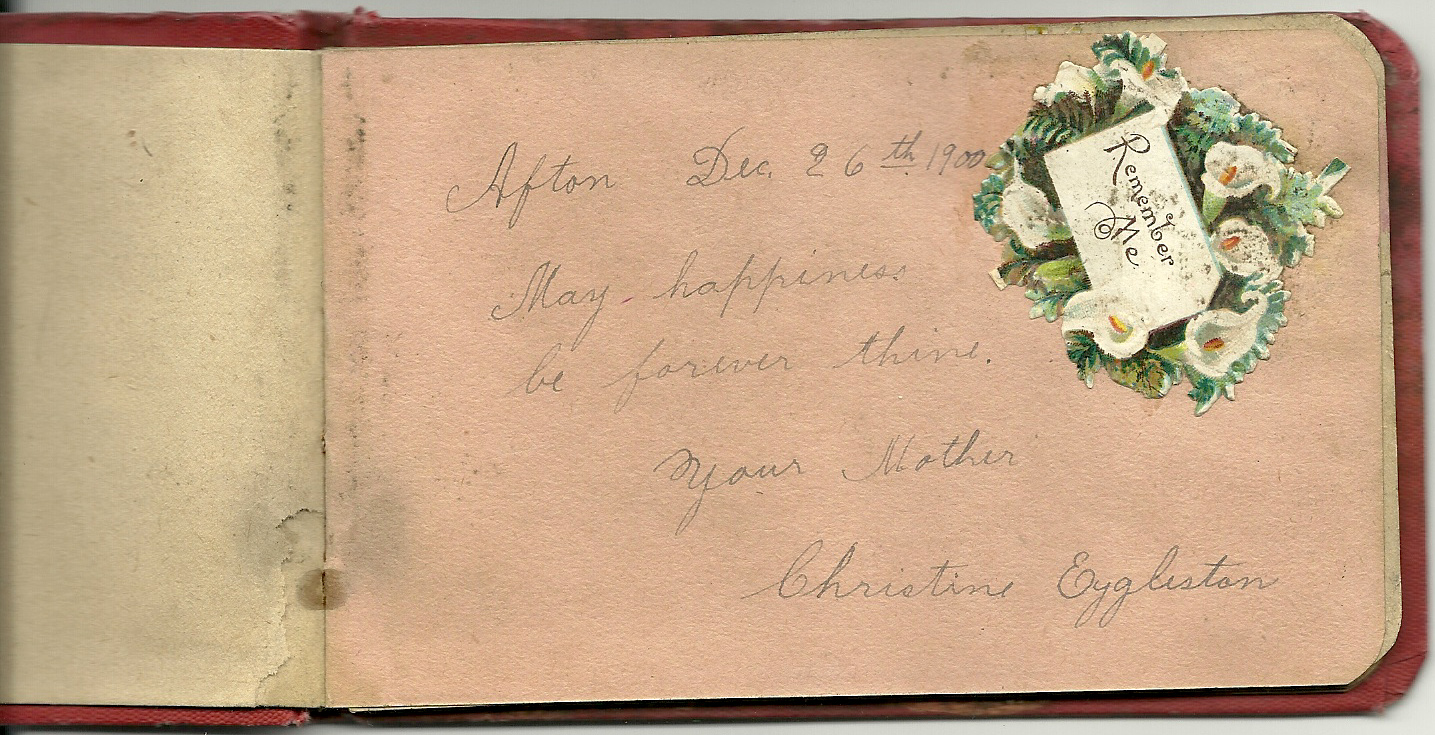 Afton Dec. 26th 1900
Remember
Me
May happiness
be forever thine.
Your Mother
Christine Eygleston